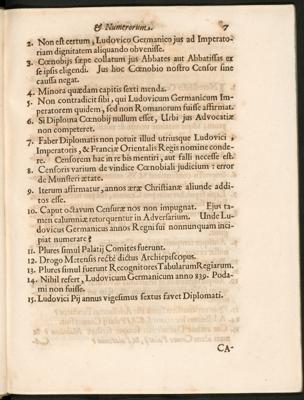 & Numerorum. 7
2. Non est certum, Ludovico Germanico jus ad Imperato-
riam dignitatem aliquando obvenisse.
3. Cœnobijs sæpe collatum jus Abbates aut Abbatissas ex
se ipsis eligendi. Jus hoc Cœnobio nostro Censor sine
caussa negat.
4. Minora quædam capitis sexti menda.
5. Non contradicit sibi, qui Ludovicum Germanicum Im-
peratorem quidem, sed non Romanorum fuisse affirmat.
6. Si Diploma Cœnobij nullum esset, Urbi jus Advocatiæ
non competeret.
7. Faber Diplomatis non potuit illud utriusque Ludovici,
Imperatoris, & Franciæ Orientalis Regis nomine conde-
re. Censorem hac in re bis mentiri, aut falli necesse est.
8. Censoris varium de vindice Cœnobiali judicium: error
de Munsteri ætate.
9. Iterum affirmatur, annos æræ Christianæ aliunde addi-
tos esse.
10. Caput octavum Censuræ nos non impugnat. Ejus ta-
men calumniæ retorquentur in Adversarium. Unde Lu-
dovicus Germanicus annos Regni sui nonnunquam inci-
piat numerare?
11. Plures simul Palatij Comites fuerunt.
12. Drogo Metensis rectè dictus Archiepiscopus.
13. Plures simul fuerunt Recognitores Tabularum Regiarum.
14. Nihil refert, Ludovicum Germanicum anno 839. Poda-
mi non fuisse.
15. Ludovici Pij annus vigesimus sextus favet Diplomati.
CA-